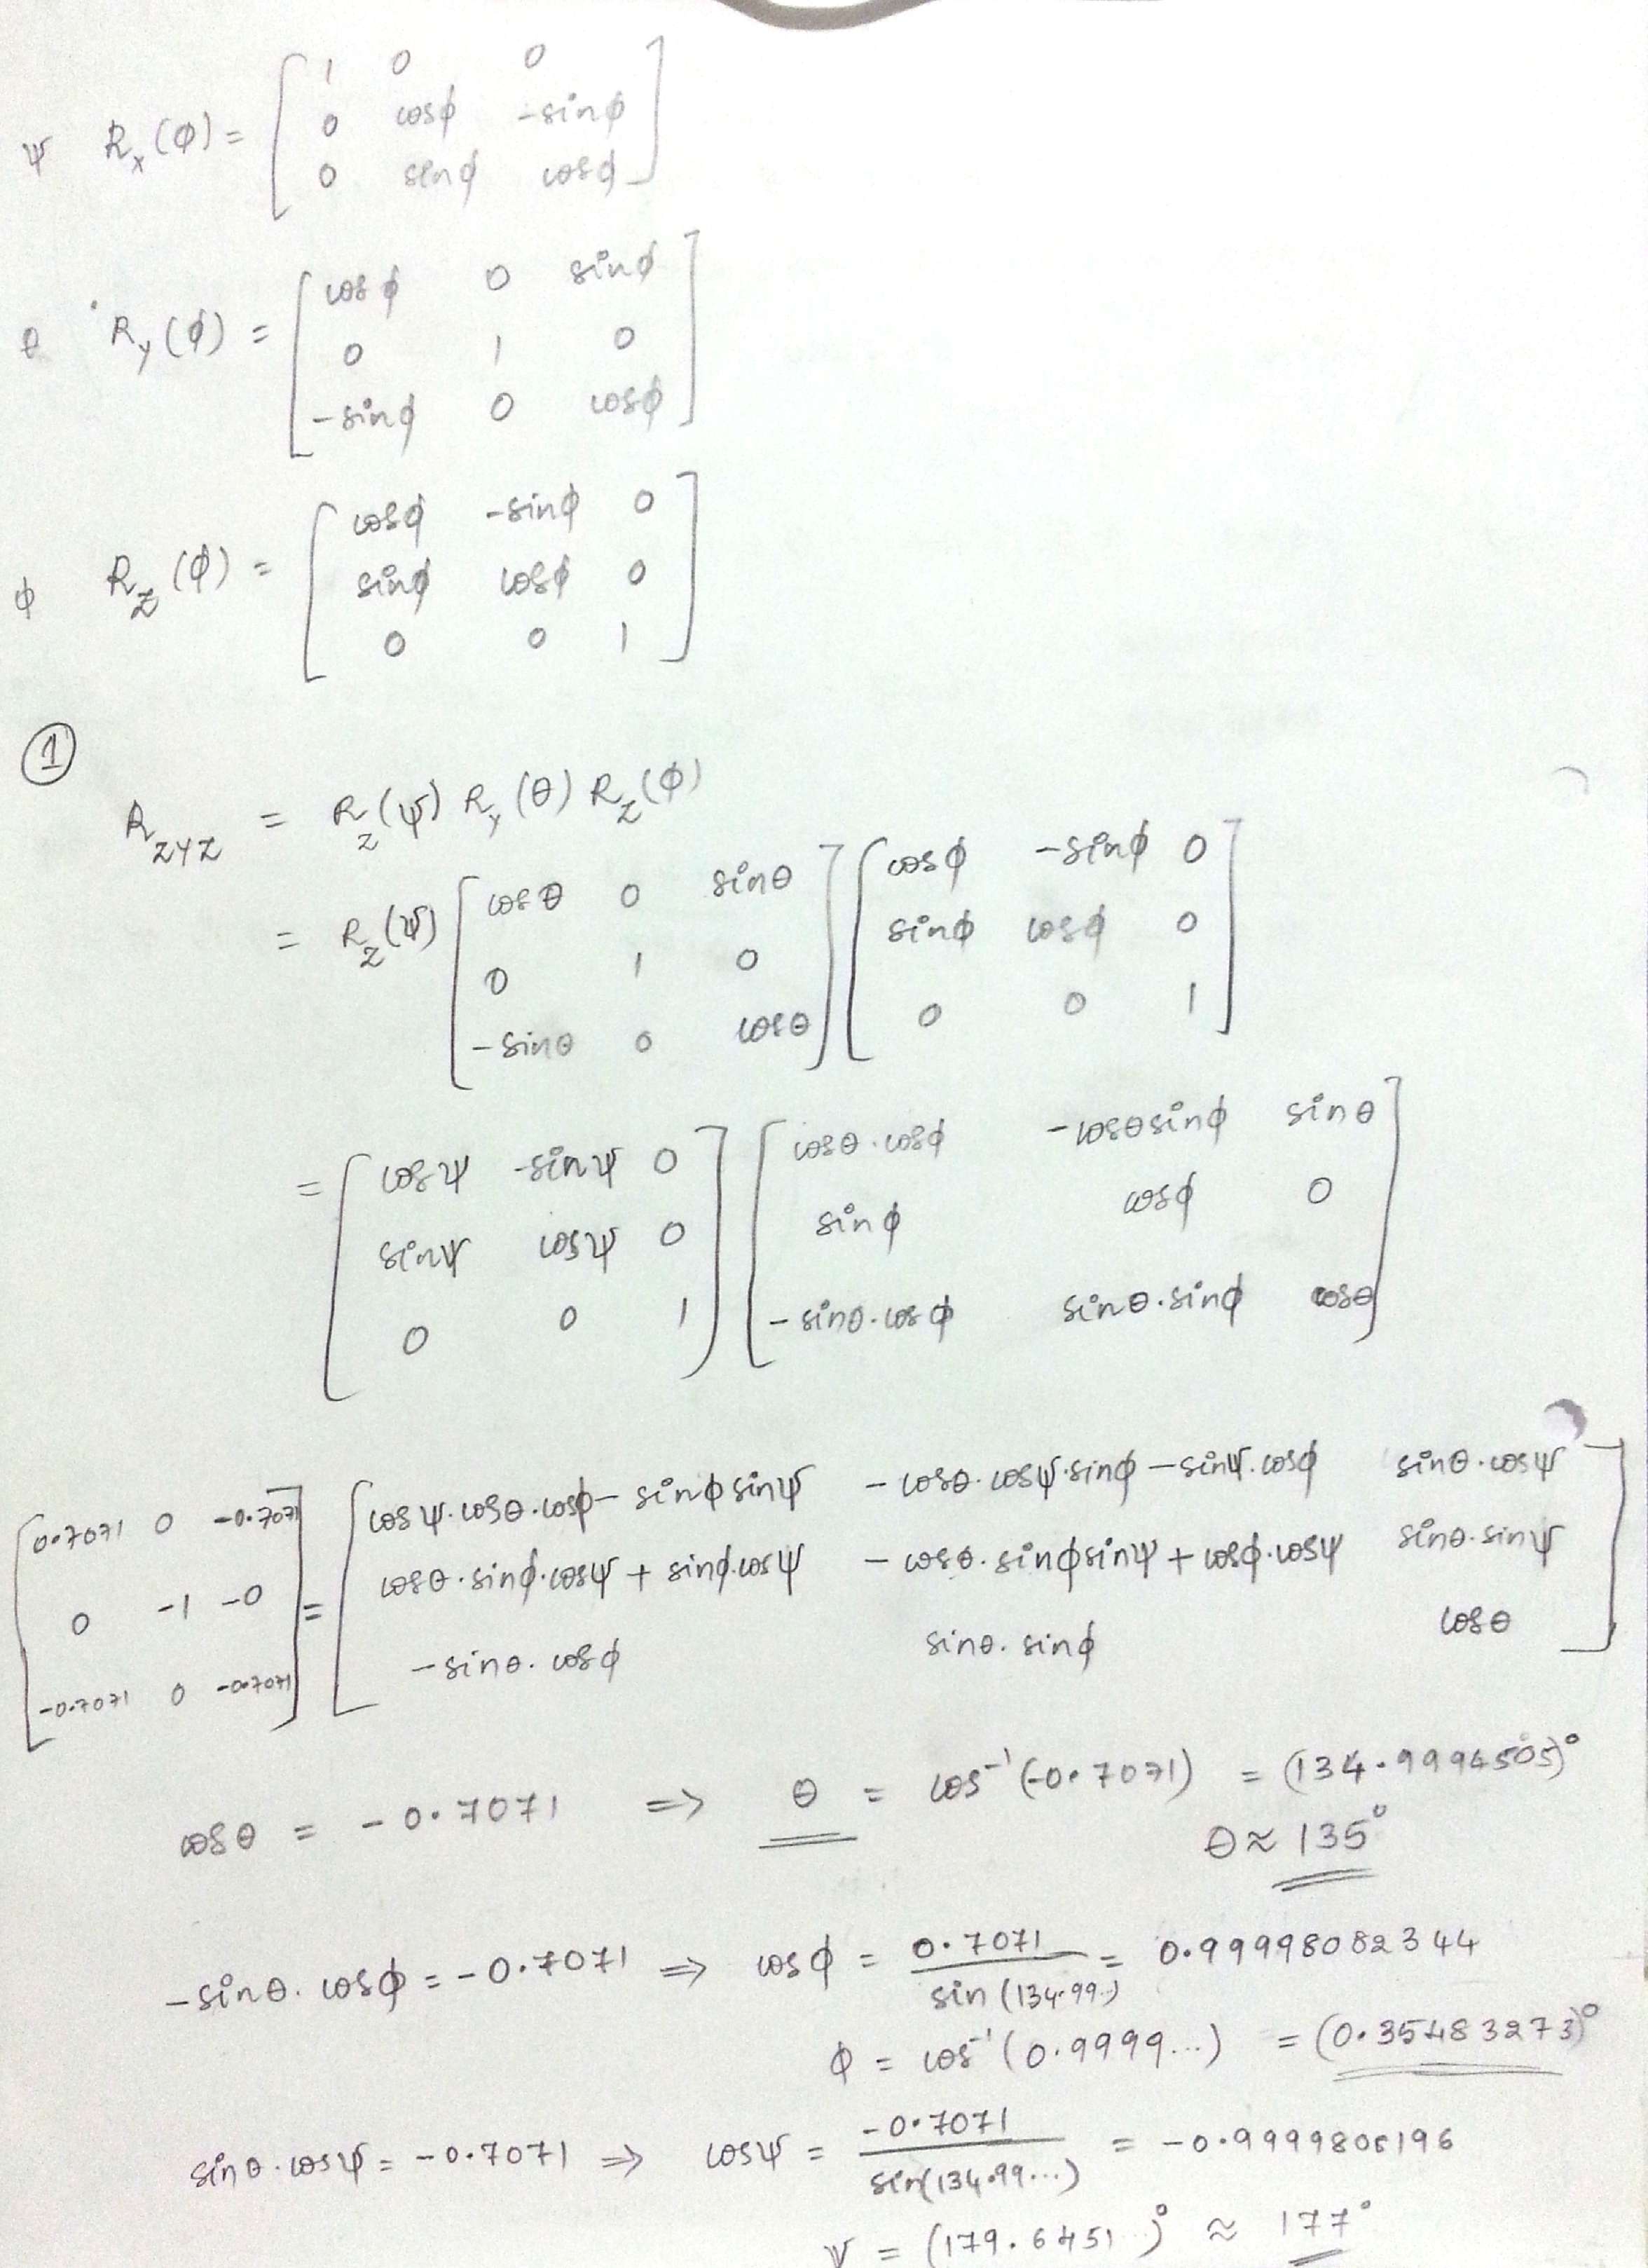 ψ Rx(φ) = [ 1 0 0
0 cosφ -sinφ
0 sinφ cosφ ]
θ Ry(φ) = [ cosφ 0 sinφ
0 1 0
-sinφ 0 cosφ ]
φ Rz(φ) = [ cosφ -sinφ 0
sinφ cosφ 0
0 0 1 ]
①
R_ZYZ = Rz(ψ) Ry(θ) Rz(φ)
= Rz(ψ) [ cosθ 0 sinθ ] [ cosφ -sinφ 0 ]
0 1 0 sinφ cosφ 0
-sinθ 0 cosθ 0 0 1
= [ cosψ -sinψ 0 ] [ cosθ.cosφ -cosθsinφ sinθ ]
sinψ cosψ 0 sinφ cosφ 0
0 0 1 -sinθ.cosφ sinθ.sinφ cosθ
[ 0.7071 0 -0.7071 ] = [ cosψ.cosθ.cosφ - sinφsinψ -cosθ.cosψ.sinφ - sinψ.cosφ sinθ.cosψ ]
0 -1 -0 cosθ.sinφ.cosψ + sinφ.cosψ -cosθ.sinφsinψ + cosφ.cosψ sinθ.sinψ
-0.7071 0 -0.7071 -sinθ.cosφ sinθ.sinφ cosθ
cosθ = -0.7071 => θ = cos⁻¹(-0.7071) = (134.9994505)°
θ ≈ 135°
-sinθ.cosφ = -0.7071 => cosφ = 0.7071 / sin(134.99..) = 0.99998082344
φ = cos⁻¹(0.9999...) = (0.35483273)°
sinθ.cosψ = -0.7071 => cosψ = -0.7071 / sin(134.99...) = -0.9999806196
ψ = (179.6451)° ≈ 177°